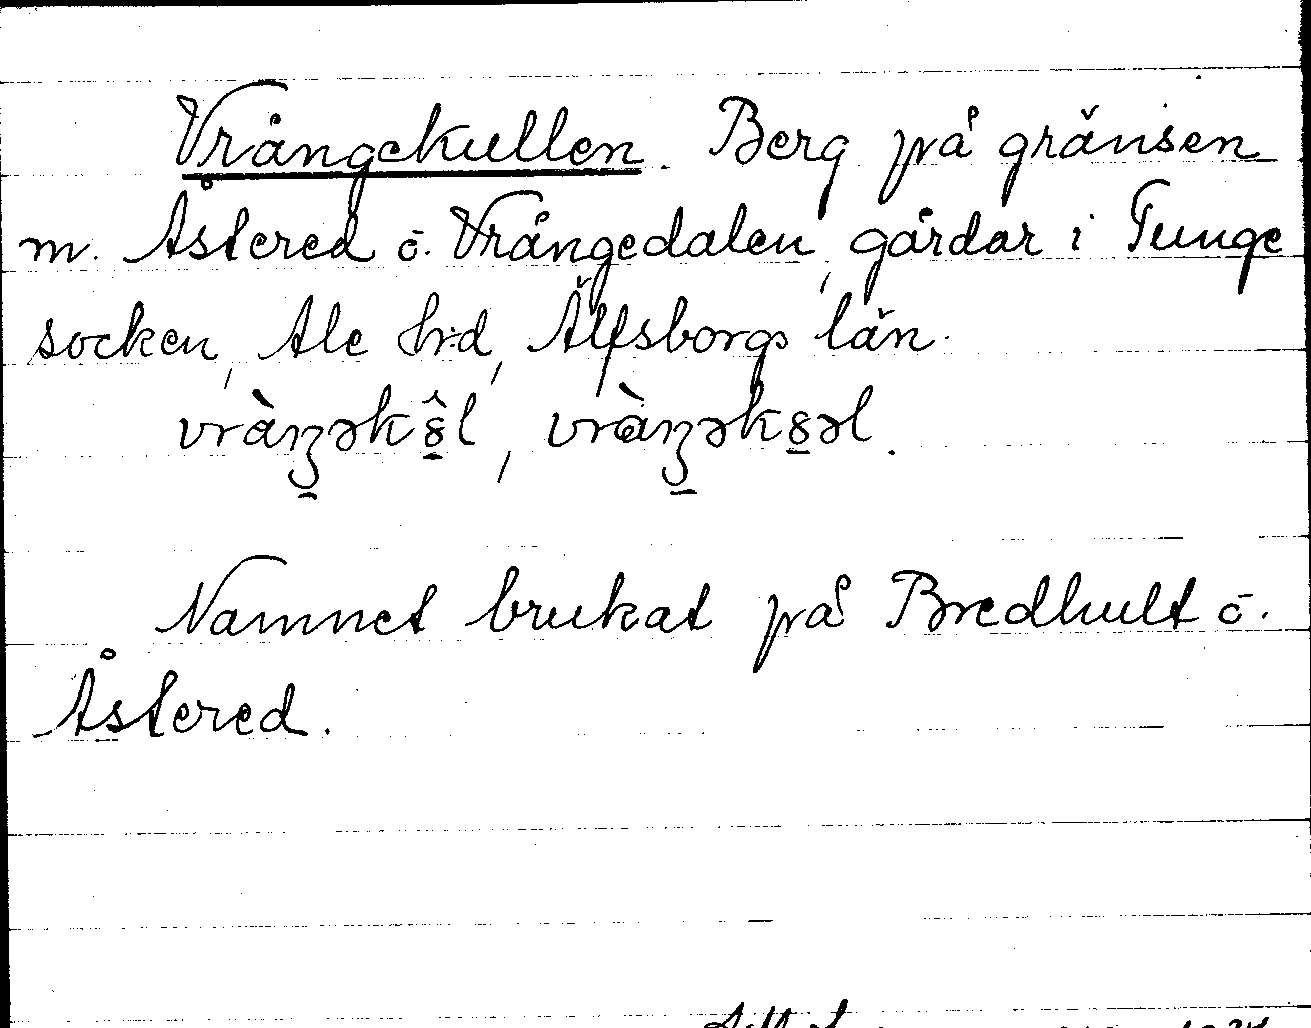 Vrångekullen. Berg på gränsen
m. Åstered o. Vrångedalen, gårdar i Tunge
socken, Ale hrd, Älfsborgs län.
Namnet brukat på Bredhult o.
Åstered.